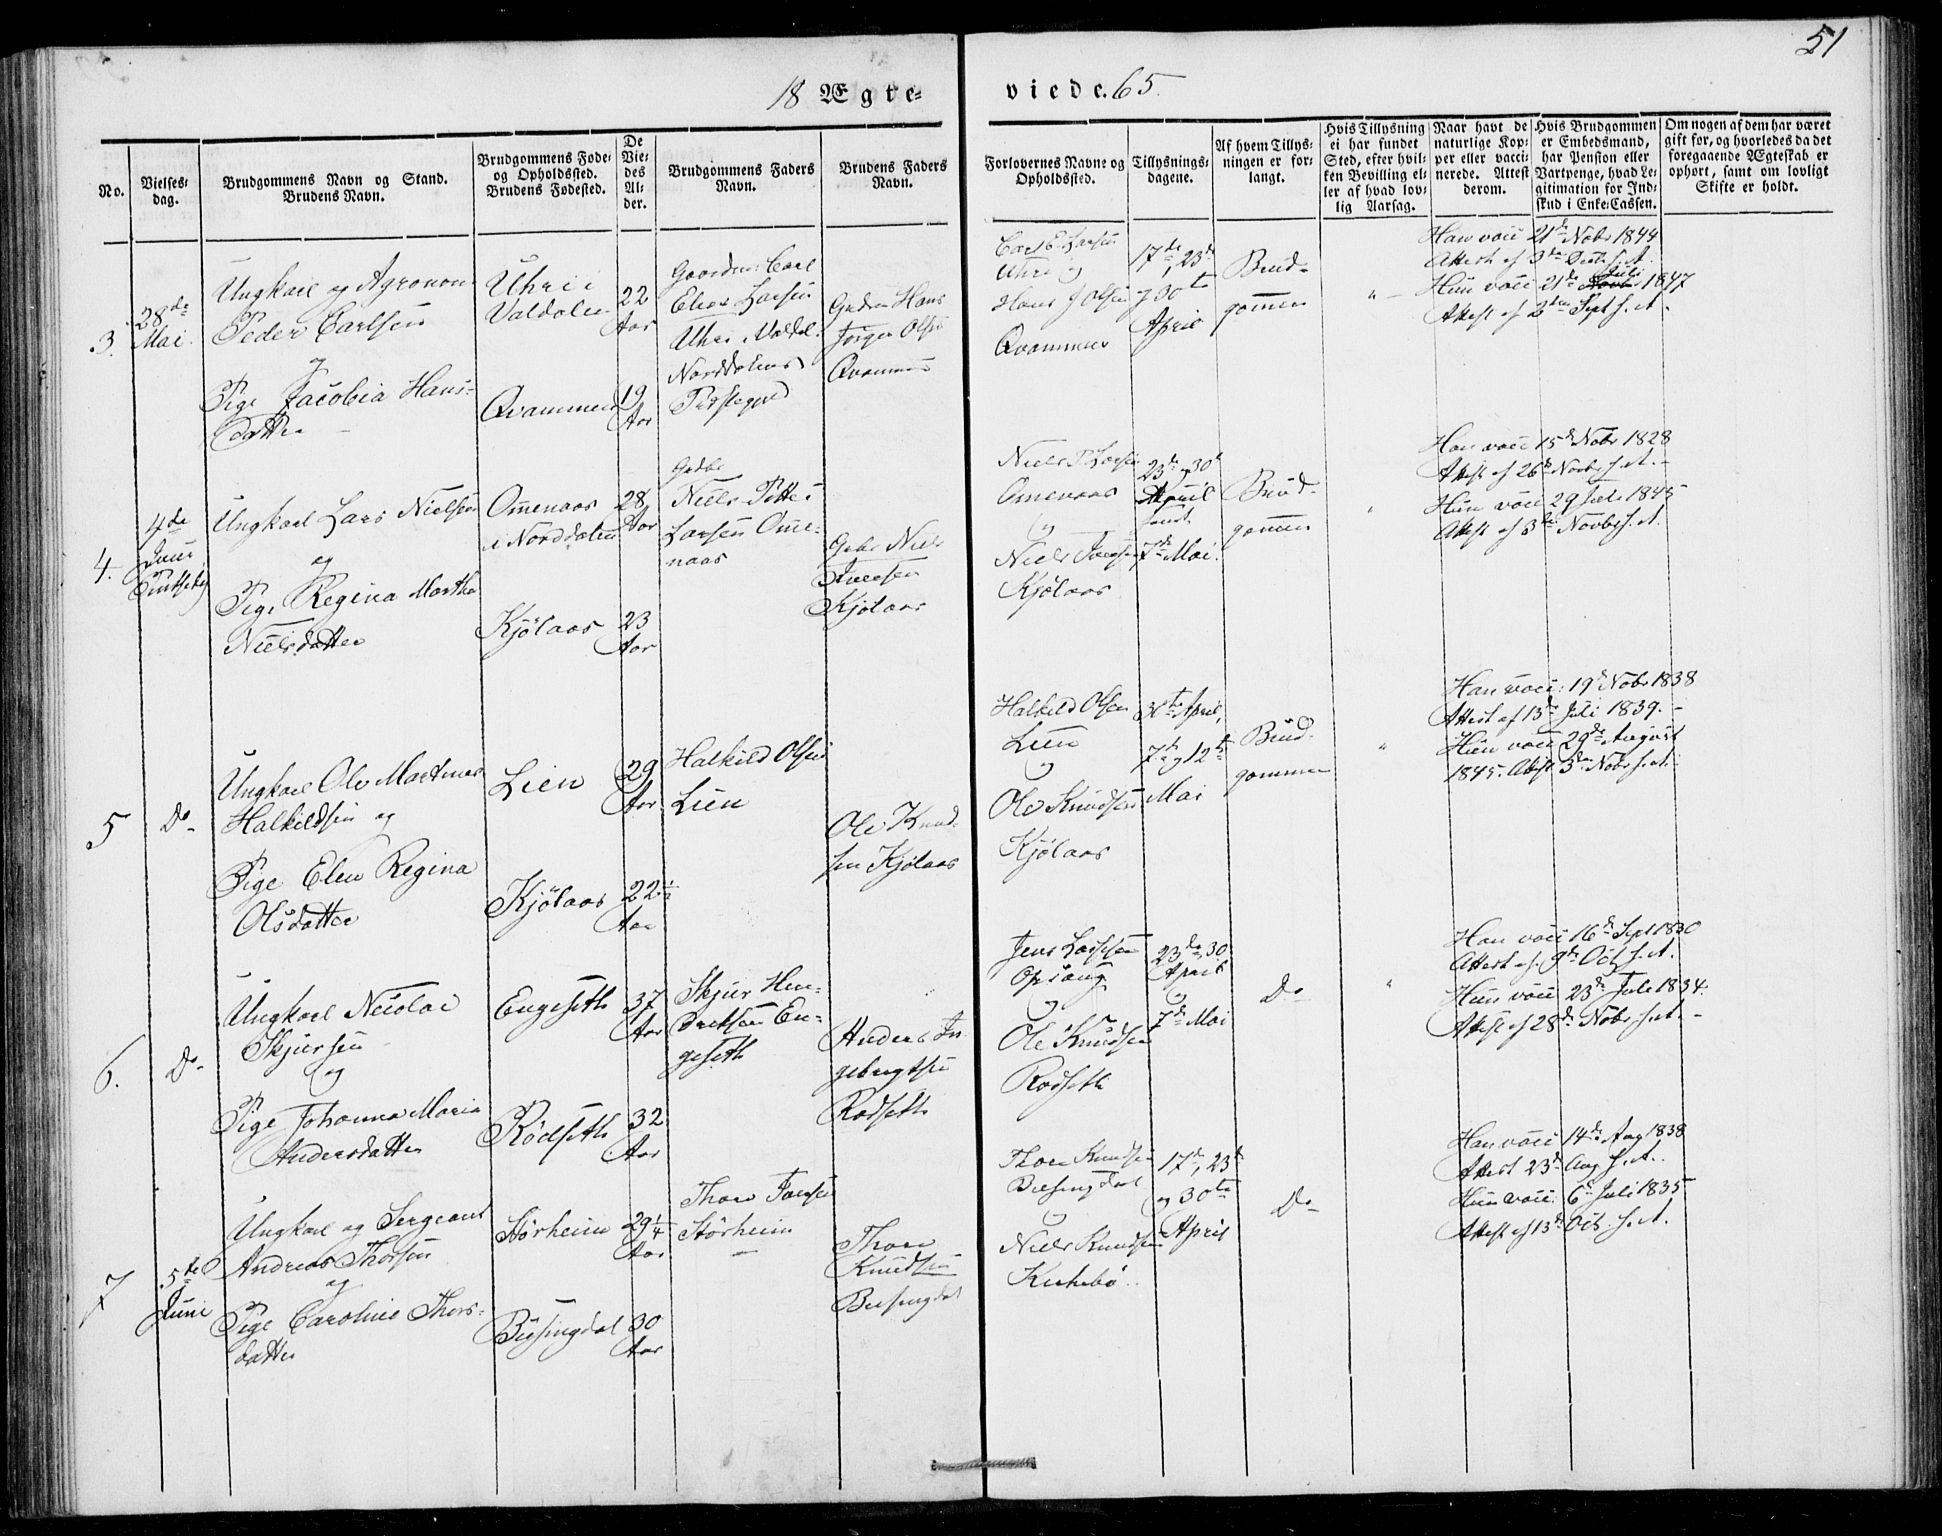 51
18 Ægte-
viede. 65.
No.
Vielses-
dag.
Brudgommens Navn og Stand.
Brudens Navn.
Brudgommens Føde-
og Opholdssted.
Brudens Fødested.
De
Vie-
des
Al-
der.
Brudgommens Faders
Navn.
Brudens Faders
Navn.
Forlovernes Navne og
Opholdssted.
Tillysnings-
dagene.
Af hvem Tillys-
ningen er for-
langt.
Hvis Tillysning
ei har fundet
Sted, efter hvil-
ken Bevilling el-
ler af hvad lov-
lig Aarsag.
Naar havt de
naturlige Kop-
per eller vacci-
nerede. Attest
derom.
Hvis Brudgommen
er Embedsmand,
har Pension eller
Vartpenge, hvad Le-
gitimation for Ind-
skud i Enke-Cassen.
Om nogen af dem har været
gift før, og hvorledes da det
foregaaende Ægteskab er
ophørt, samt om lovligt
Skifte er holdt.
3.
28de
Mai.
Ungkarl og Agronom
Peder Carlsen
og
Pige Jacobia Hans-
datter
Uhri i
Valdalen
Qvammen
22
Aar
19
Aar
Gaardm: Carl
Elias Larsen
Uhri, Valdal.
Norddalens
Præstegjeld
Grdm Hans
Jørgen Olsen
Qvammen
Carl E. Larsen
Uhri og
Hans J Olsen
Qvammen
17de, 23de
og 30te
April
Brud-
gommen
"
Han vacc 21de Nobr 1844
Attest af 3de Decb s. A.
Juli
Hun vacc 21de Novbr 1847
Attest af 2den Sept s. A.
4.
4de
Juni
Pintsedag
Ungkarl Lars Nielsen
og
Pige Regina Martha
Nielsdatter
Omenaas
i Norddalen
Kjølaas
28
Aar
23
Aar
Grdbr
Niels Petter
Larsen Ome-
naas
Grbr Niels
Iversen
Kjølaas
Niels P. Larsen
Omenaas
og
Niels Iversen
Kjølaas
23de og 30te
April
samt
7de Mai.
Brud-
gommen
"
Han vacc 15de Nobr 1828
Attest af 26de Novbr s. A.
Hun vacc 29 Juli 1845
Attest af 3de Novbr s. A.
5
Do
Ungkarl Ole Martinus
Halkildsen og
Pige Elen Regina
Olsdatter
Lien
Kjølaas
29
Aar
22½
Aar
Halkild Olsen
Lien
Ole Knud-
sen Kjølaas
Halkild Olsen
Lien
og
Ole Knudsen
Kjølaas
30te April,
7de og 12te
Mai
Brud-
gommen
"
Han vacc: 19de Nobr 1838
Attest af 13de Juli 1839.
Hun vacc 29de August
1845. Attest 3de Nobr s. A.
6.
Do
Ungkarl Nicolai
Skjursen
og
Pige Johanna Maria
Andersdatter
Engeseth
Rødseth
37
Aar
32
Aar
Skjur Hen-
driksen En-
geseth
Anders In-
gebrigtsen
Rødseth
Jens Larssen
Opsang
og
Ole Knudsen
Rødseth
23de, 30
April
og
7de Mai
Do
"
Han vacc 16de Sept 1830
Attest af 9de Oct s. A.
Hun vacc 23de Juli 1834.
Attest af 28de Nobr s. A.
7
5te
Juni
Ungkarl og Sergeant
Andreas Thorsen
og
Pige Caroline Thors-
datter
Størheim
Bigsingdal
29¼
Aar
30
Aar
Thore Iversen
Størheim
Thore
Knudsen
Thore Knudsen
og
Niels Knudsen
Kirkebø
17de, 23de
og 30te
April
Do
Han vacc 14de Aug 1838
Attest 23de Aug s. A.
Hun vacc: 6te Juli 1835
Attest af 13de Oct. s. A.